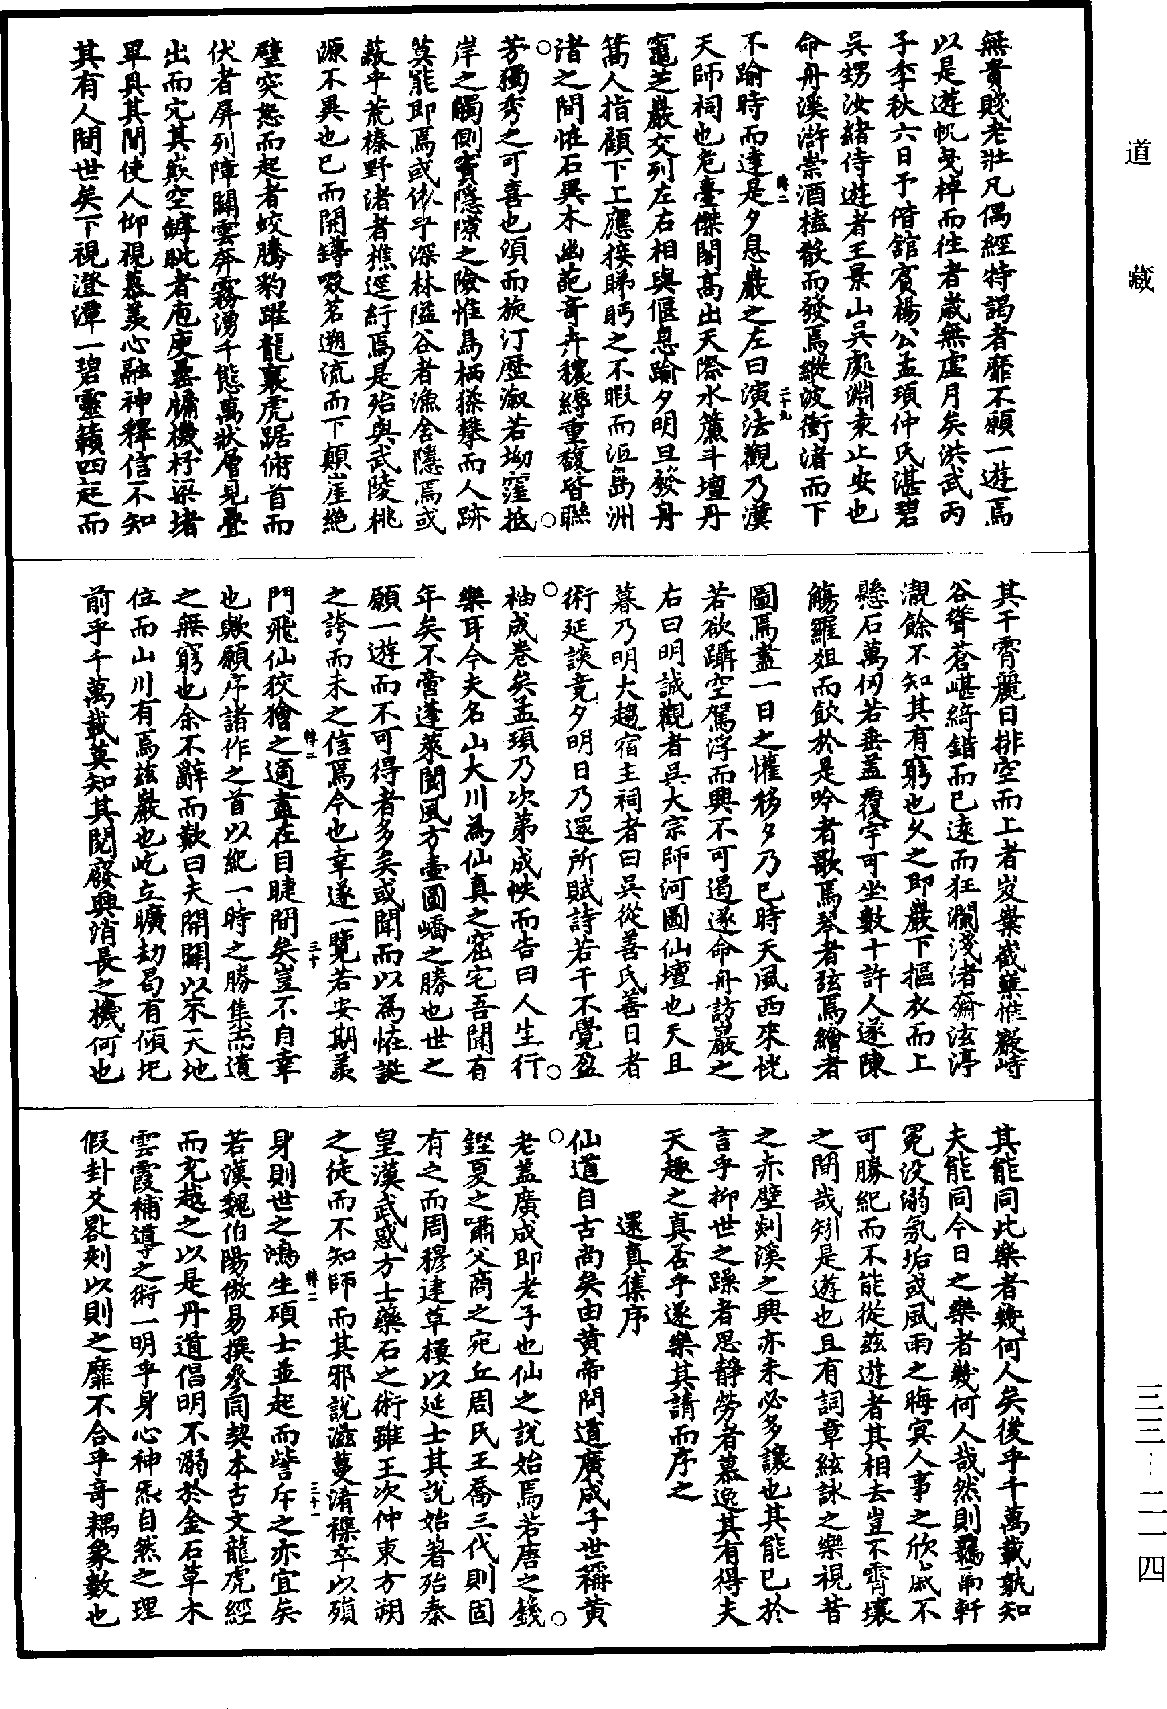 道藏
三三—二一四
無貴賤老壯凡偶經特謁者靡不願一遊焉
以是遊帆曳棹而往者歲無虛月矣洪武丙
子季秋六日予偕館賓楊公孟頊仲氏湛碧
吳甥汝緒侍遊者王景山吳處淵束止安也
命舟溪滸崇酒榼骰而發焉縱波衝渚而下
不踰時而達是夕息巖之左曰演法觀乃漢
天師祠也危臺傑閣高出天際水簾斗壇丹
竈芝巖交列左右相與偃息踰夕明旦發舟
篙人指顧下上應接睇眄之不暇而洰島洲
渚之間恠石異木幽葩奇卉穠縟重馥皆聯
芳獨秀之可喜也須而旋汀歷溆若坳窪抵
岸之觸側竇隱隙之險惟鳥栖猱攀而人跡
莫能即焉或依乎深林隘谷者漁舍隱焉或
蔽乎荒榛野渚者樵逕紆焉是殆與武陵桃
源不異也已而開罇啜茗遡流而下顛崖絕
壁突怒而起者蛟騰豹躍龍褭虎踞俯首而
伏者屏列障關雲奔霧湧千態萬狀層見疊
出而宂其嵌空罅眦者庖庾罍牖機杼梁堵
畢具其間使人仰視慕羨心融神釋信不知
其有人間世矣下視澄潭一碧靈籟四起而
其干霄麗日排空而上者岌嶪嶻嶪惟巖峙
谷聳蒼嵁綺錯而已遠而狂瀾淺渚奫泫渟
瀷餘不知其有窮也久之即巖下摳衣而上
懸石萬仞若垂蓋覆宇可坐數十許人遂陳
觴羅俎而飲於是吟者歌焉琴者弦焉繪者
圖焉盡一日之懽移夕乃已時天風西來恍
若欲躡空駕浮而興不可遏遂命舟訪巖之
右曰明誠觀者吳大宗師河圖仙壇也天且
暮乃明大趨宿主祠者曰吳從善氏善日者
術延談竟夕明日乃還所賦詩若干不覺盈
袖成卷矣孟頊乃次第成帙而告曰人生行
樂耳今夫名山大川為仙真之窟宅吾聞有
年矣不啻蓬萊閬風方壺圓嶠之勝也世之
願一遊而不可得者多矣或聞而以為恠誕
之誇而未之信焉今也幸遂一覽若安期羨
門飛仙狡獪之適盡在目睫間矣豈不自幸
也歟願序諸作之首以紀一時之勝集耑遺
之無窮也余不辭而歎曰夫開闢以來天地
位而山川有焉茲巖也屹立曠劫局有傾圮
前乎千萬載莫知其閱廢興消長之機何也
其能同此樂者幾何人矣後乎千萬載孰知
夫能同今日之樂者幾何人哉然則羈南軒
冕没溺氛垢或風雨之晦冥人事之欣戚不
可勝紀而不能從茲遊者其相去豈不霄壤
之間哉矧是遊也且有詞章絃詠之樂視昔
之赤壁剡溪之興亦未必多讓也其能已於
言乎抑世之躁者思靜勞者慕逸其有得夫
天趣之真否乎遂樂其請而序之
還真集序
仙道自古尚矣由黃帝問道廣成子世稱黃
老蓋廣成即老子也仙之說始焉若唐之籛
鏗夏之嘯父商之宛丘周氏王喬三代則固
有之而周穆建草樓以延士其說始著殆秦
皇漢武惑方士藥石之術雖王次仲東方朔
之徒而不知師而其邪說滋蔓淆襍卒以殞
身則世之鴻生碩士並起而訾斥之亦宜矣
若漢魏伯陽倣易撰參同契本古文龍虎經
而充越之以是丹道倡明不溺於金石草木
雲霞補導之術一明乎身心神炁自然之理
假卦爻晷刻以則之靡不合乎奇耦象數也